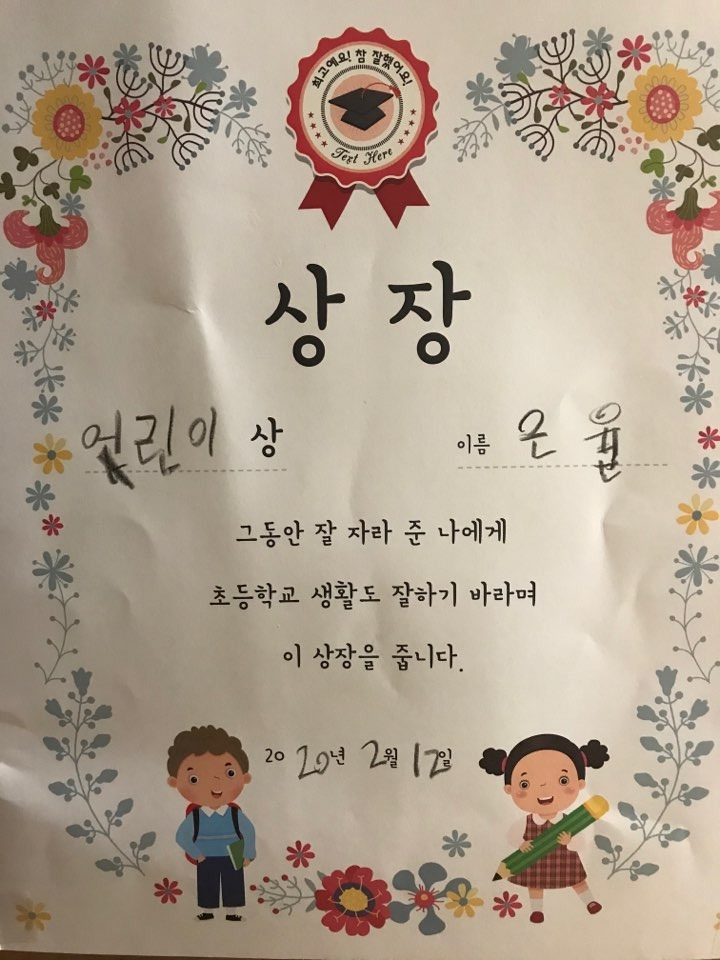 최고예요! 참 잘했어요!
Text Here
상장
얼린이 상
이름 온 율
그동안 잘 자라 준 나에게
초등학교 생활도 잘하기 바라며
이 상장을 줍니다.
2020년 2월 12일